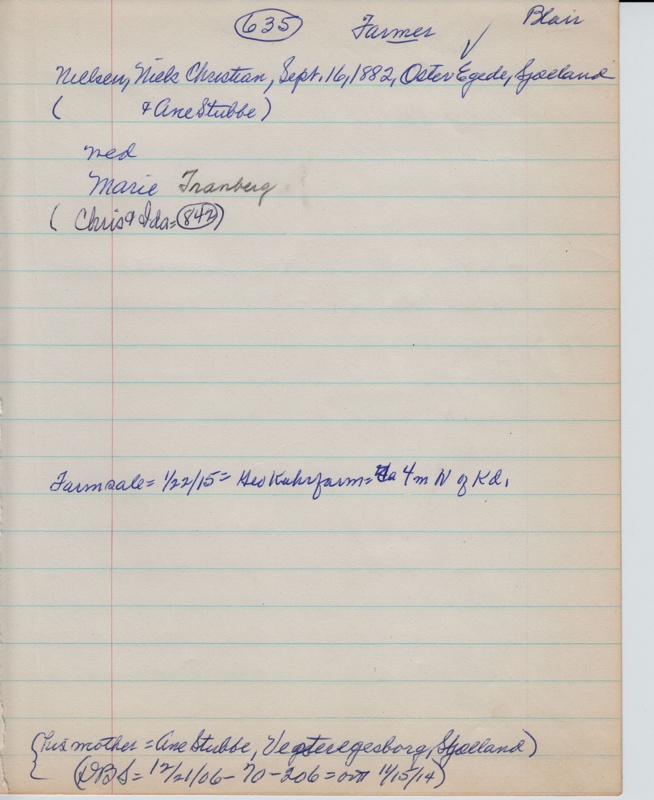 635 Farmer Blair
Nielsen, Niels Christian, Sept. 16, 1882, Oster Egede, Sjaeland
( & Ane Stubbe)
med
Marie Tranberg
( Chris & Ida = 842)
Farmsale = 1/22/15 = Geo Kuhr farm = 4 m N of Kd.
{ his mother = Ane Stubbe, Vesteregesborg, Sjaeland)
(DBS = 12/21/06 - 70 - 206 = 11/15/14)